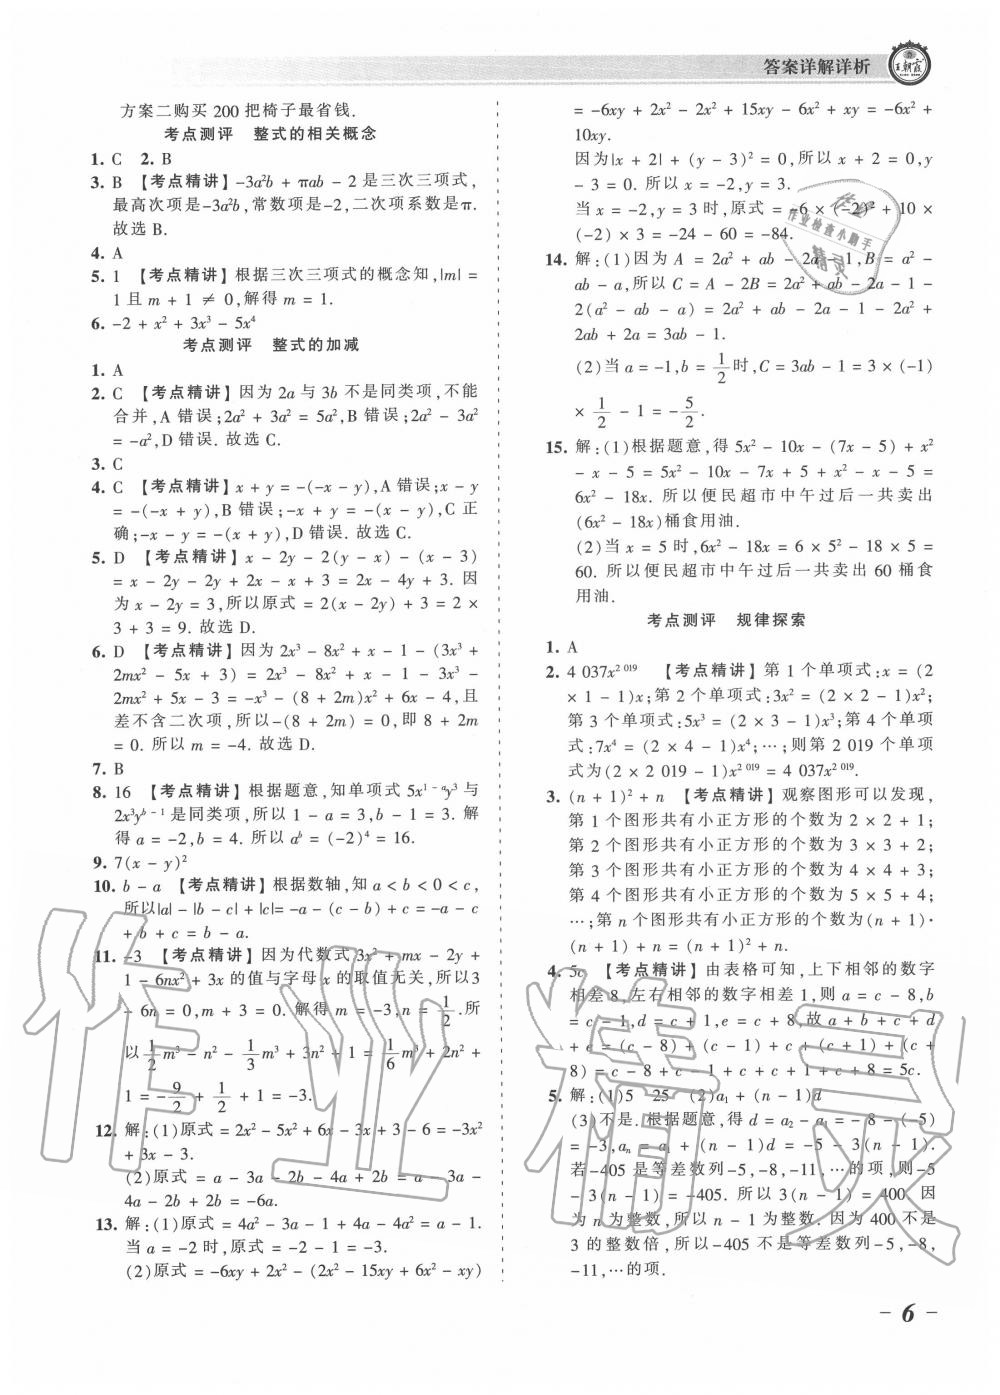 答案详解详析
王朝霞
方案二购买 200 把椅子最省钱.
考点测评 整式的相关概念
1. C 2. B
3. B 【考点精讲】-3a²b + πab - 2 是三次三项式,
最高次项是-3a²b,常数项是-2,二次项系数是π.
故选 B.
4. A
5. 1 【考点精讲】根据三次三项式的概念知,|m| =
1 且 m + 1 ≠ 0,解得 m = 1.
6. -2 + x² + 3x³ - 5x⁴
考点测评 整式的加减
1. A
2. C 【考点精讲】因为 2a 与 3b 不是同类项,不能
合并,A 错误;2a² + 3a² = 5a²,B 错误;2a² - 3a²
= -a²,D 错误. 故选 C.
3. C
4. C 【考点精讲】x + y = -(-x - y),A 错误;x - y
= -(-x + y),B 错误;-x + y = -(x - y),C 正
确;-x - y = -(x + y),D 错误. 故选 C.
5. D 【考点精讲】x - 2y - 2(y - x) - (x - 3)
= x - 2y - 2y + 2x - x + 3 = 2x - 4y + 3. 因
为 x - 2y = 3,所以原式 = 2(x - 2y) + 3 = 2 ×
3 + 3 = 9. 故选 D.
6. D 【考点精讲】因为 2x³ - 8x² + x - 1 - (3x³ +
2mx² - 5x + 3) = 2x³ - 8x² + x - 1 - 3x³ -
2mx² + 5x - 3 = -x³ - (8 + 2m)x² + 6x - 4,且
差不含二次项,所以-(8 + 2m) = 0,即 8 + 2m
= 0. 所以 m = -4. 故选 D.
7. B
8. 16 【考点精讲】根据题意,知单项式 5x¹⁻ᵃy³ 与
2x³yᵇ⁻¹是同类项,所以 1 - a = 3,b - 1 = 3. 解
得 a = -2,b = 4. 所以 aᵇ = (-2)⁴ = 16.
9. 7(x - y)²
10. b - a 【考点精讲】根据数轴,知 a < b < 0 < c,
所以|a| - |b - c| + |c|= -a - (c - b) + c = -a - c
+ b + c = b - a.
11. -3 【考点精讲】因为代数式 3x² + mx - 2y +
1 - 6nx² + 3x 的值与字母 x 的取值无关,所以3
- 6n = 0,m + 3 = 0. 解得 m = -3,n = 1/2. 所
以 1/2 m³ - n² - 1/3 m³ + 3n² + 1 = 1/6 m³ + 2n² +
1 = -9/2 + 1/2 + 1 = -3.
12. 解:(1)原式 = 2x² - 5x² + 6x - 3x + 3 - 6 = -3x²
+ 3x - 3.
(2)原式 = a - 3a - 2b - 4a + 2b = a - 3a -
4a - 2b + 2b = -6a.
13. 解:(1)原式 = 4a² - 3a - 1 + 4a - 4a² = a - 1.
当 a = -2 时,原式 = -2 - 1 = -3.
(2)原式 = -6xy + 2x² - (2x² - 15xy + 6x² - xy)
= -6xy + 2x² - 2x² + 15xy - 6x² + xy = -6x² +
10xy.
因为|x + 2| + (y - 3)² = 0,所以 x + 2 = 0,y
- 3 = 0. 所以 x = -2,y = 3.
当 x = -2,y = 3 时,原式 = -6 × (-2)² + 10 ×
(-2) × 3 = -24 - 60 = -84.
14. 解:(1)因为 A = 2a² + ab - 2a - 1,B = a² -
ab - a,所以 C = A - 2B = 2a² + ab - 2a - 1 -
2(a² - ab - a) = 2a² + ab - 2a - 1 - 2a² +
2ab + 2a = 3ab - 1.
(2)当 a = -1,b = 1/2 时,C = 3ab - 1 = 3 × (-1)
× 1/2 - 1 = -5/2.
15. 解:(1)根据题意,得 5x² - 10x - (7x - 5) + x²
- x - 5 = 5x² - 10x - 7x + 5 + x² - x - 5 =
6x² - 18x. 所以便民超市中午过后一共卖出
(6x² - 18x)桶食用油.
(2)当 x = 5 时,6x² - 18x = 6 × 5² - 18 × 5 =
60. 所以便民超市中午过后一共卖出 60 桶食
用油.
考点测评 规律探索
1. A
2. 4 037x² ⁰¹⁹ 【考点精讲】第 1 个单项式:x = (2
× 1 - 1)x;第 2 个单项式:3x² = (2 × 2 - 1)x²;
第 3 个单项式:5x³ = (2 × 3 - 1)x³;第 4 个单项
式:7x⁴ = (2 × 4 - 1)x⁴;…;则第 2 019 个单项
式为(2 × 2 019 - 1)x² ⁰¹⁹ = 4 037x² ⁰¹⁹.
3. (n + 1)² + n 【考点精讲】观察图形可以发现,
第 1 个图形共有小正方形的个数为 2 × 2 + 1;
第 2 个图形共有小正方形的个数为 3 × 3 + 2;
第 3 个图形共有小正方形的个数为 4 × 4 + 3;
第 4 个图形共有小正方形的个数为 5 × 5 + 4;
…;第 n 个图形共有小正方形的个数为(n + 1)·
(n + 1) + n = (n + 1)² + n.
4. 5c 【考点精讲】由表格可知,上下相邻的数字
相差 8,左右相邻的数字相差 1,则 a = c - 8,b
= c - 1,d = c + 1,e = c + 8,故 a + b + c + d
+ e = (c - 8) + (c - 1) + c + (c + 1) + (c +
8) = c - 8 + c - 1 + c + c + 1 + c + 8 = 5c.
5. 解:(1)5 25 (2)a₁ + (n - 1)d
(3)不是. 根据题意,得 d = a₂ - a₁ = -8 - (-5)
= -3,aₙ = a₁ + (n - 1)d = -5 - 3(n - 1).
若-405 是等差数列-5,-8,-11,…的项,则-5
- 3(n - 1) = -405. 所以 3(n - 1) = 400. 因
为 n 为整数,所以 n - 1 为整数. 因为 400 不是
3 的整数倍,所以-405 不是等差数列-5,-8,
-11,…的项.
作业检查小助手
精灵
作业精灵
- 6 -